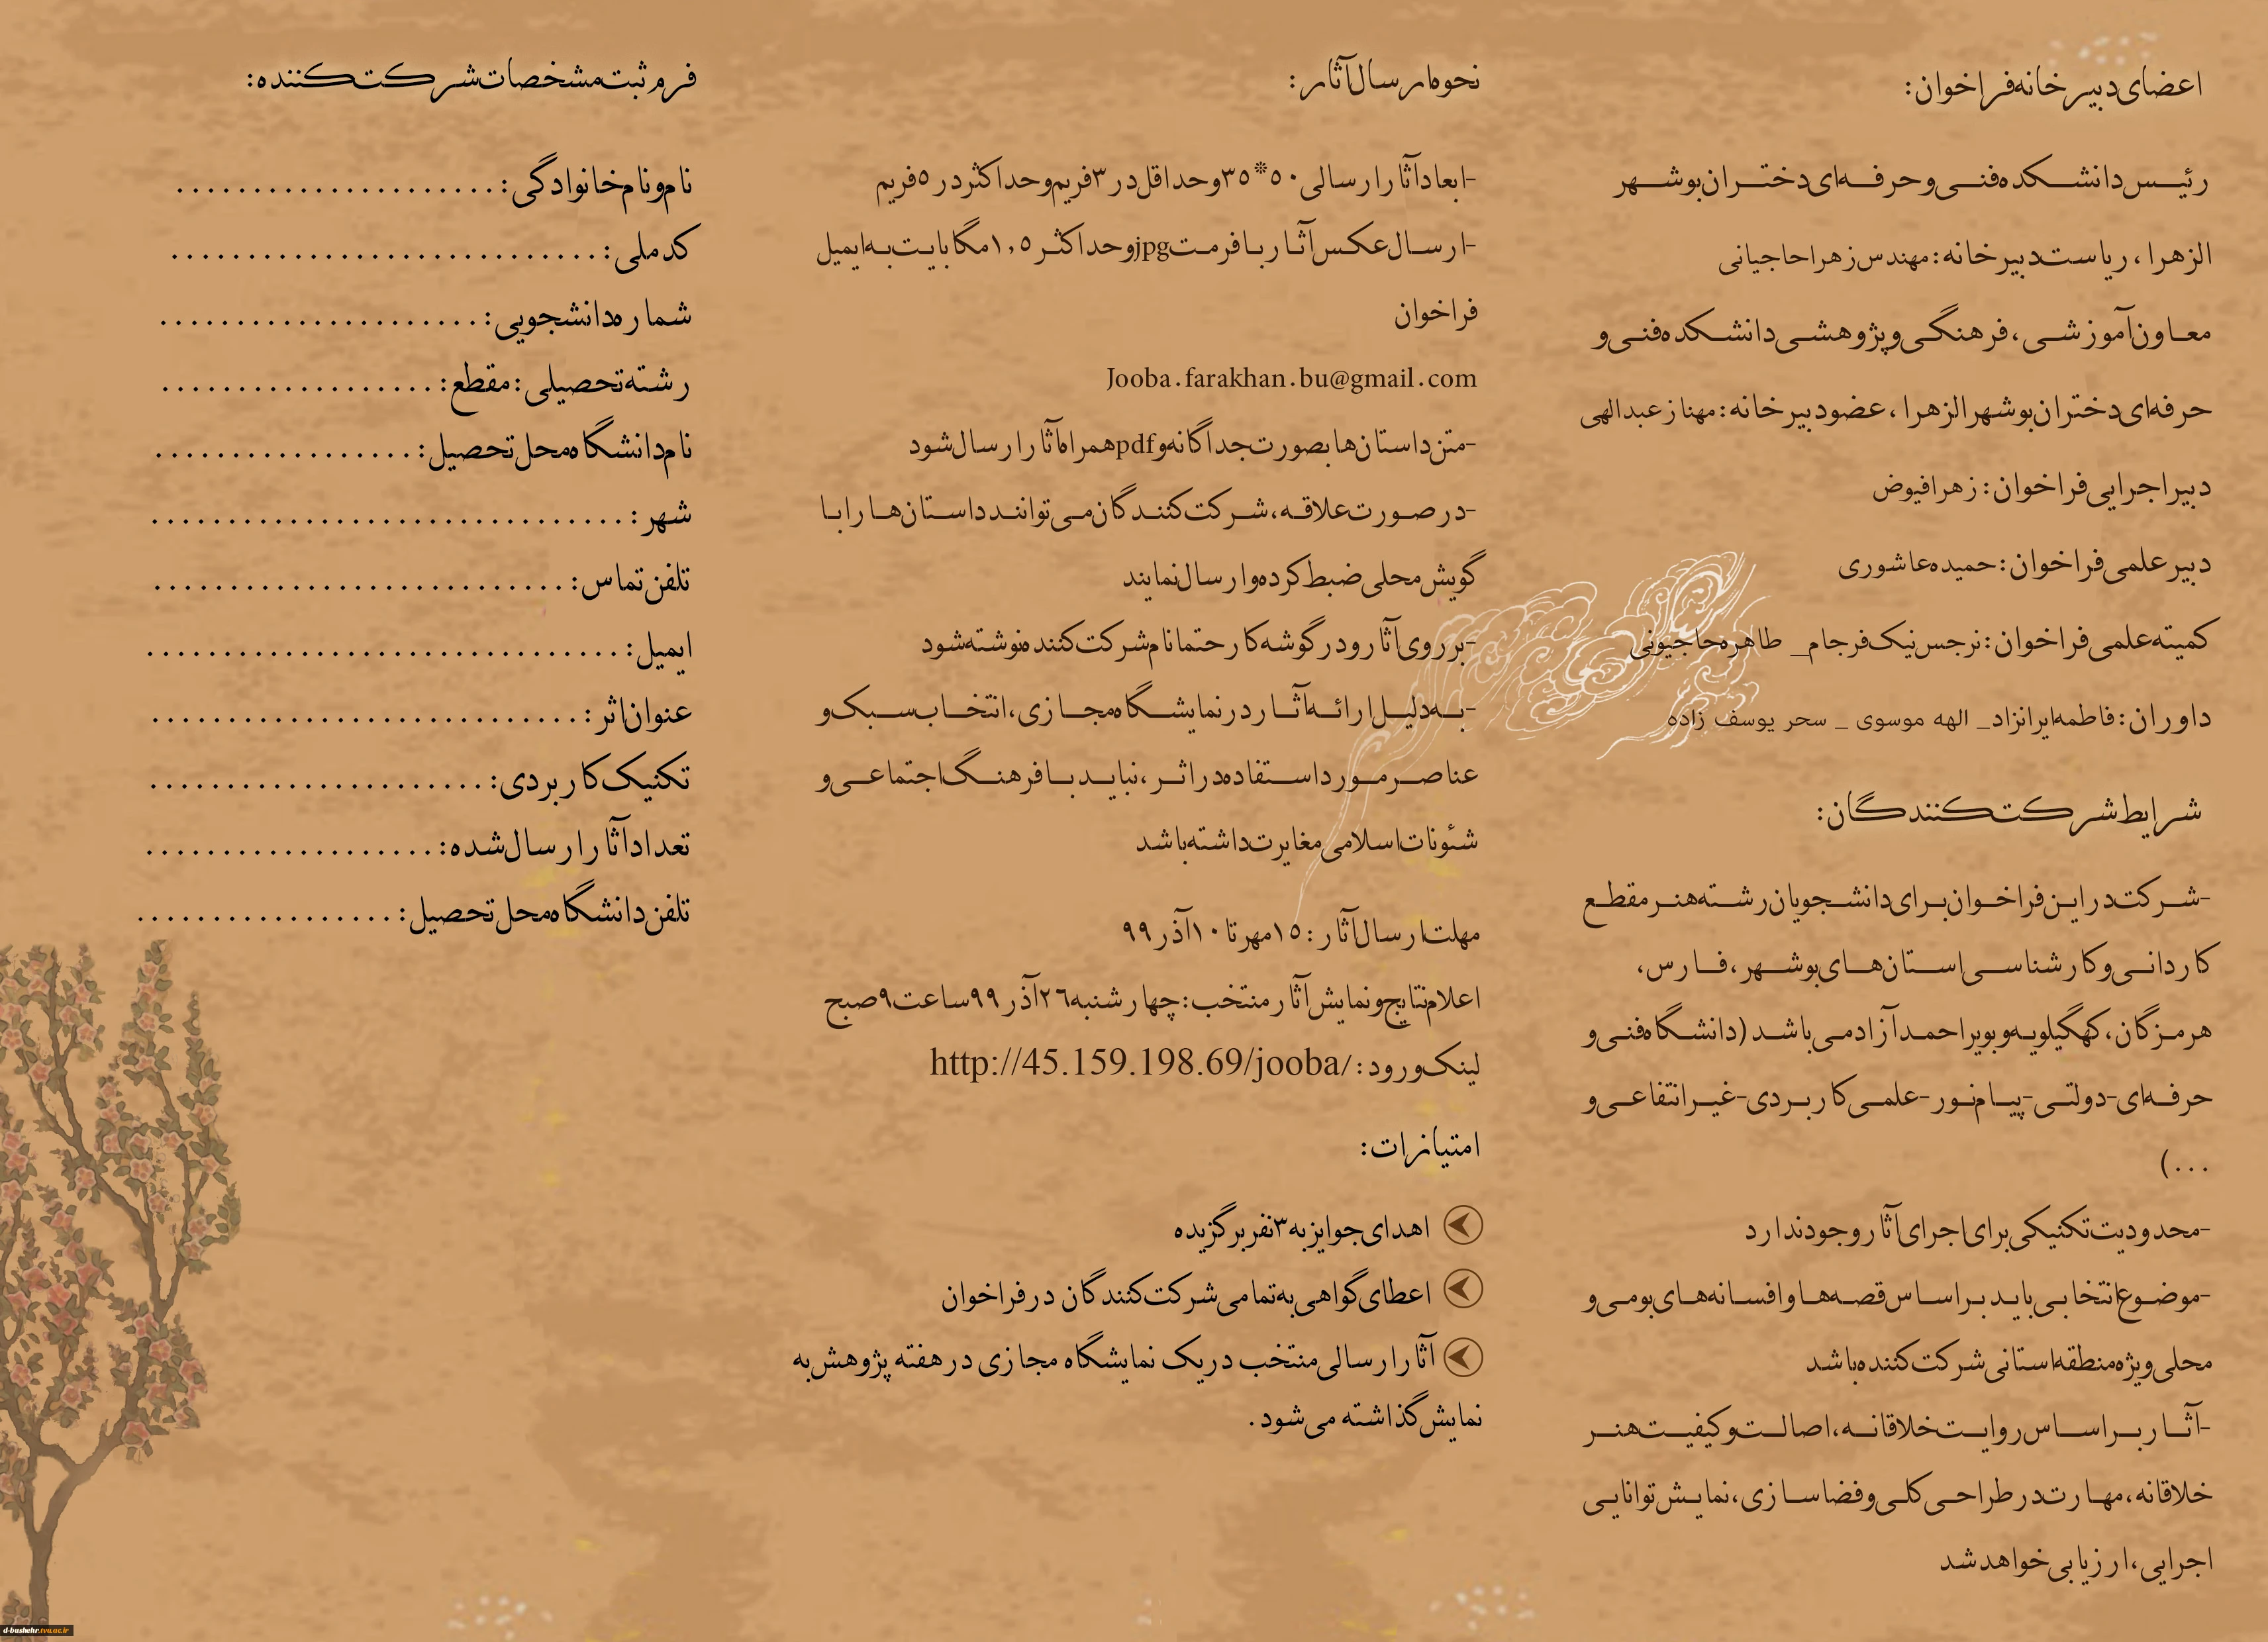 اعضای دبیرخانه فراخوان:
رئیس دانشکده فنی و حرفه‌ای دختران بوشهر
الزهرا، ریاست دبیرخانه: مهندس زهرا حاجیانی
معاون آموزشی، فرهنگی و پژوهشی دانشکده فنی و
حرفه‌ای دختران بوشهر الزهرا، عضو دبیرخانه: مهناز عبدالهی
دبیر اجرایی فراخوان: زهرا فیوض
دبیر علمی فراخوان: حمیده عاشوری
کمیته علمی فراخوان: نرجس نیک فرجام_ طاهره حاجیونی
داوران: فاطمه ایرانزاد_ الهه موسوی _ سحر یوسف زاده
شرایط شرکت کنندگان:
-شرکت در این فراخوان برای دانشجویان رشته هنر مقطع
کاردانی و کارشناسی استان‌های بوشهر، فارس،
هرمزگان، کهگیلویه و بویراحمد آزاد می باشد (دانشگاه فنی و
حرفه‌ای-دولتی-پیام نور-علمی کاربردی-غیرانتفاعی و
...)
-محدودیت تکنیکی برای اجرای آثار وجود ندارد
-موضوع انتخابی باید بر اساس قصه‌ها و افسانه‌های بومی و
محلی ویژه منطقه استانی شرکت کننده باشد
-آثار بر اساس روایت خلاقانه، اصالت و کیفیت هنر
خلاقانه، مهارت در طراحی کلی و فضاسازی، نمایش توانایی
اجرایی، ارزیابی خواهد شد
نحوه ارسال آثار:
-ابعاد آثار ارسالی ۵۰*۳۵ و حداقل در ۳ فریم و حداکثر در ۵ فریم
-ارسال عکس آثار با فرمت jpg و حداکثر ۱,۵ مگابایت به ایمیل
فراخوان
Jooba.farakhan.bu@gmail.com
-متن داستان‌ها بصورت جداگانه و pdf همراه آثار ارسال شود
-در صورت علاقه، شرکت کنندگان می توانند داستان‌ها را با
گویش محلی ضبط کرده و ارسال نمایند
-بر روی آثار و در گوشه کار حتما نام شرکت کننده نوشته شود
-به دلیل ارائه آثار در نمایشگاه مجازی، انتخاب سبک و
عناصر مورد استفاده در اثر، نباید با فرهنگ اجتماعی و
شئونات اسلامی مغایرت داشته باشد
مهلت ارسال آثار: ۱۵ مهر تا ۱۰ آذر ۹۹
اعلام نتایج و نمایش آثار منتخب: چهارشنبه ۲۶ آذر ۹۹ ساعت ۹ صبح
لینک ورود: http://45.159.198.69/jooba/
امتیازات:
اهدای جوایز به ۳ نفر برگزیده
اعطای گواهی به تمامی شرکت کنندگان در فراخوان
آثار ارسالی منتخب در یک نمایشگاه مجازی در هفته پژوهش به
نمایش گذاشته می شود.
فرم ثبت مشخصات شرکت کننده:
نام و نام خانوادگی: .....................
کد ملی: ............................
شماره دانشجویی: .....................
رشته تحصیلی: مقطع: ..................
نام دانشگاه محل تحصیل: .................
شهر: ...............................
تلفن تماس: ...........................
ایمیل: ...............................
عنوان اثر: ............................
تکنیک کاربردی: ......................
تعداد آثار ارسال شده: ...................
تلفن دانشگاه محل تحصیل: .................
d-bushehr.tvu.ac.ir